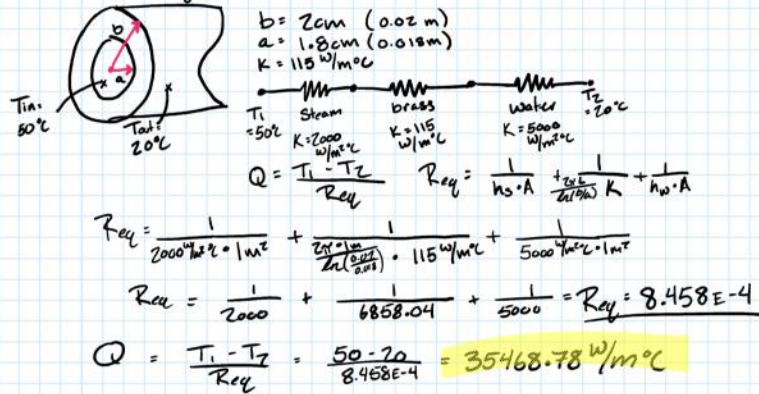 b = 2cm (0.02 m)
a = 1.8cm (0.018m)
K = 115 W/m°C
b
a
Tin = 50°C
Tout = 20°C
T1 = 50°C
Steam
K = 2000 W/m²°C
brass
K = 115 W/m°C
water
K = 5000 W/m²°C
T2 = 20°C
Q = (T1 - T2) / Req
Req = 1/(hs · A) + 1/((2πL/ln(b/a)) K) + 1/(hw · A)
Req = 1/(2000 W/m²°C · 1m²) + 1/((2π · 1m/ln(0.02/0.018)) · 115 W/m°C) + 1/(5000 W/m²°C · 1m²)
Req = 1/2000 + 1/6858.04 + 1/5000 = Req = 8.458E-4
Q = (T1 - T2)/Req = (50 - 20)/8.458E-4 = 35468.78 W/m°C